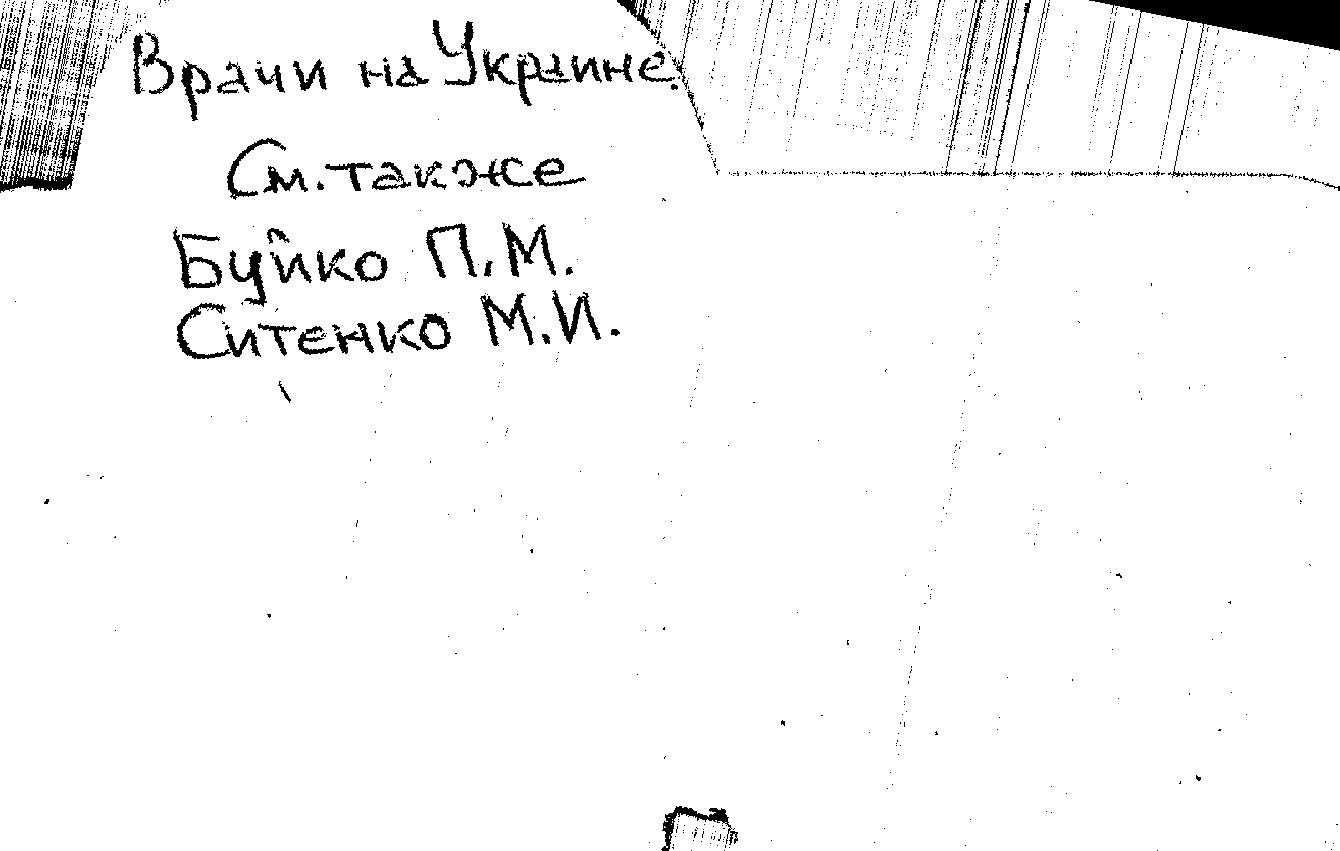 Врачи на Украине.
См. также
Буйко П.М.
Ситенко М.И.